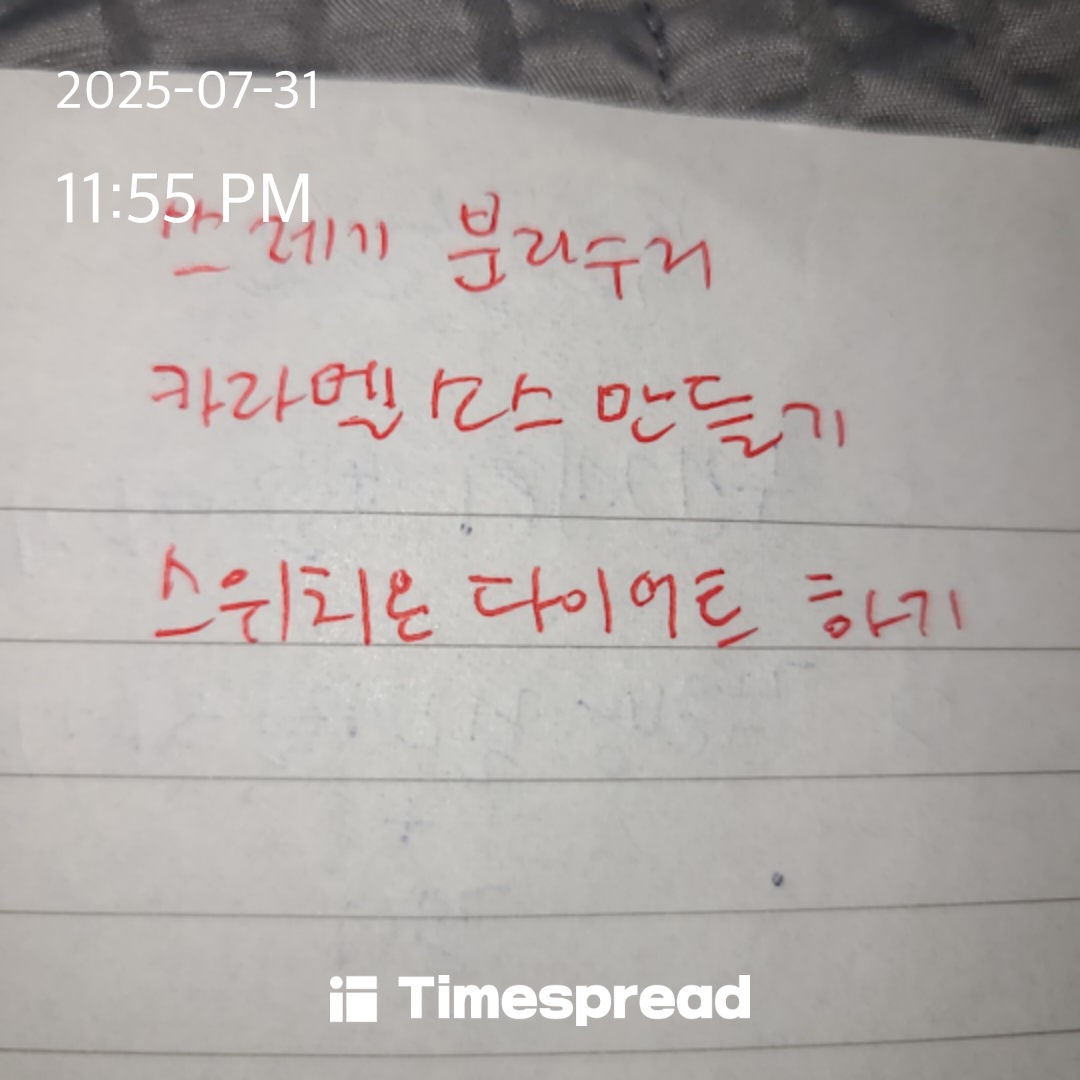 2025-07-31
11:55 PM
쓰레기 분리수거
카라멜 소스 만들기
스위치온 다이어트 하기
Timespread